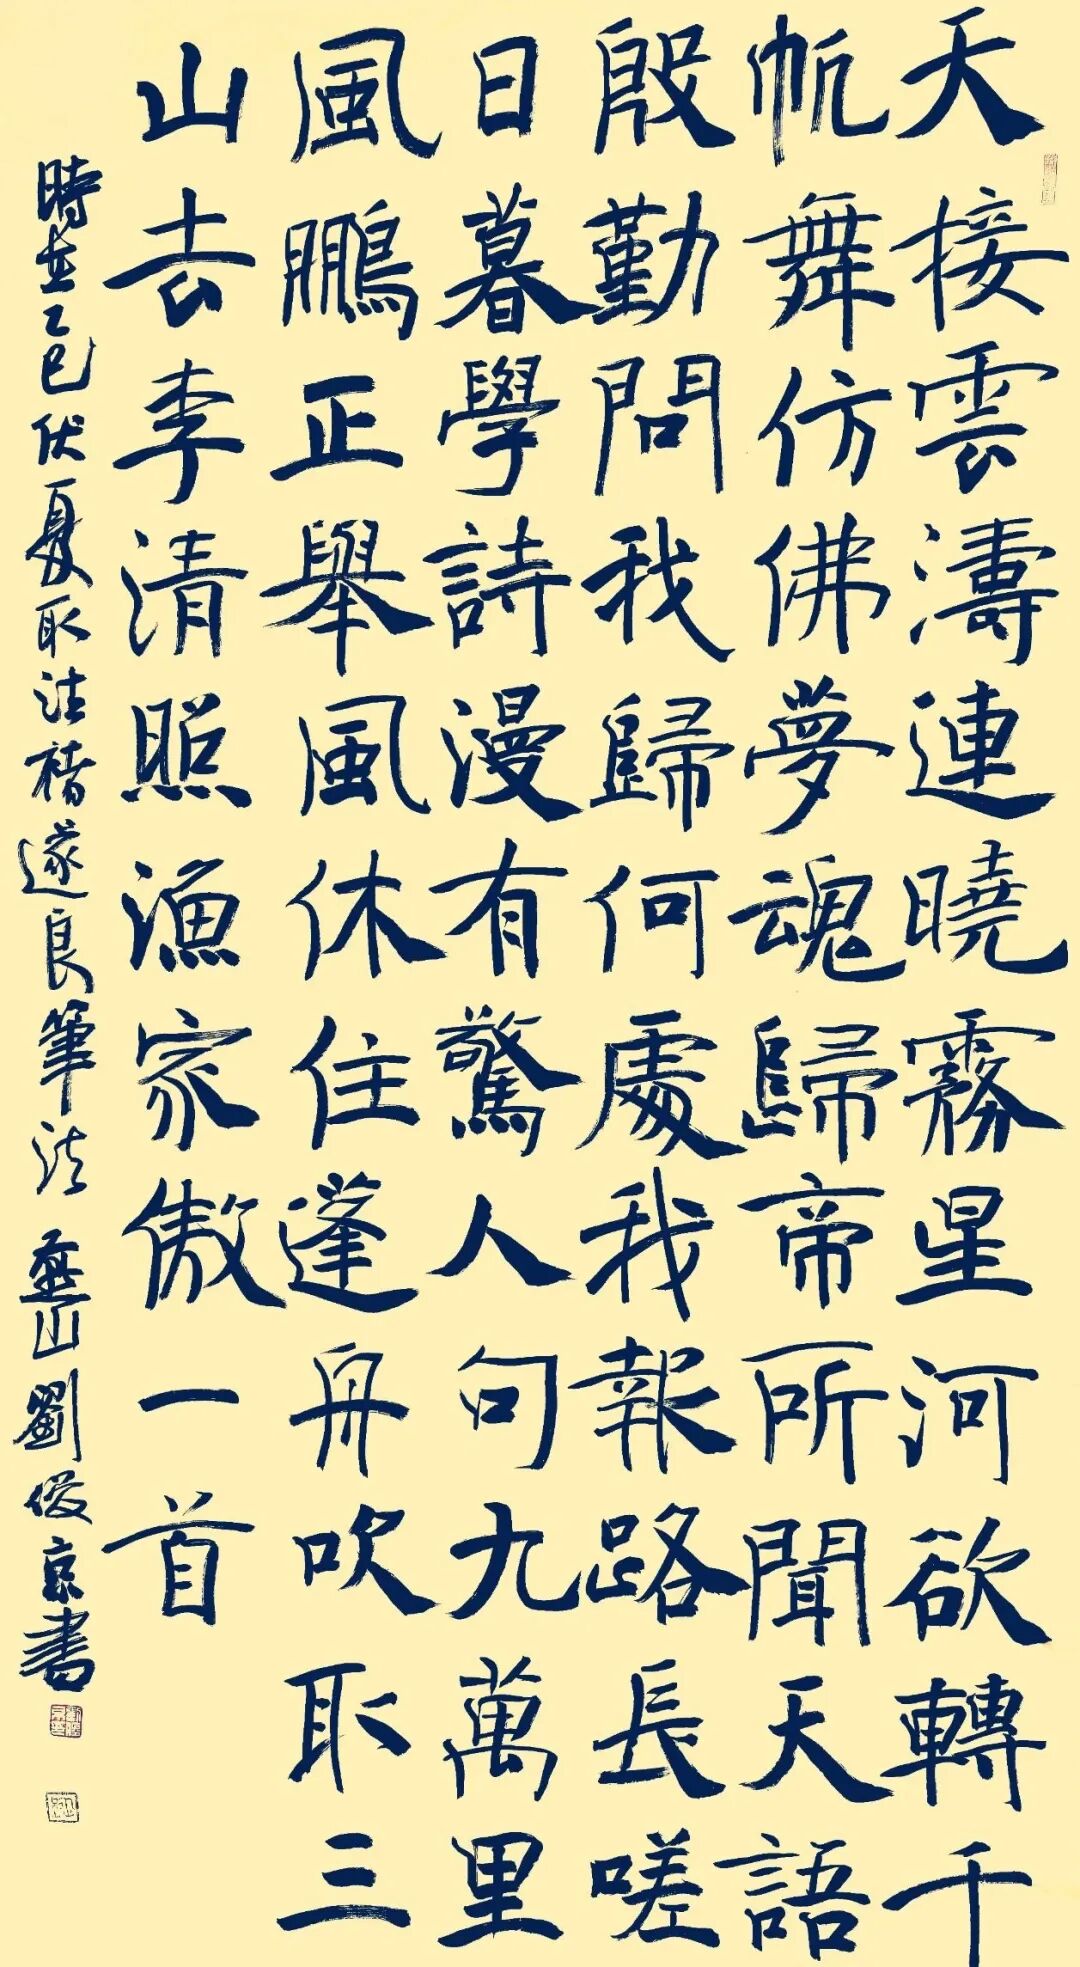 天接雲濤連曉霧星河欲轉千
帆舞仿佛夢魂歸帝所聞天語
殷勤問我歸何處我報路長嗟
日暮學詩漫有驚人句九萬里
風鵬正舉風休住蓬舟吹取三
山去李清照漁家傲一首
時在乙巳伏夏取法褚遂良筆法燕山劉俊京書